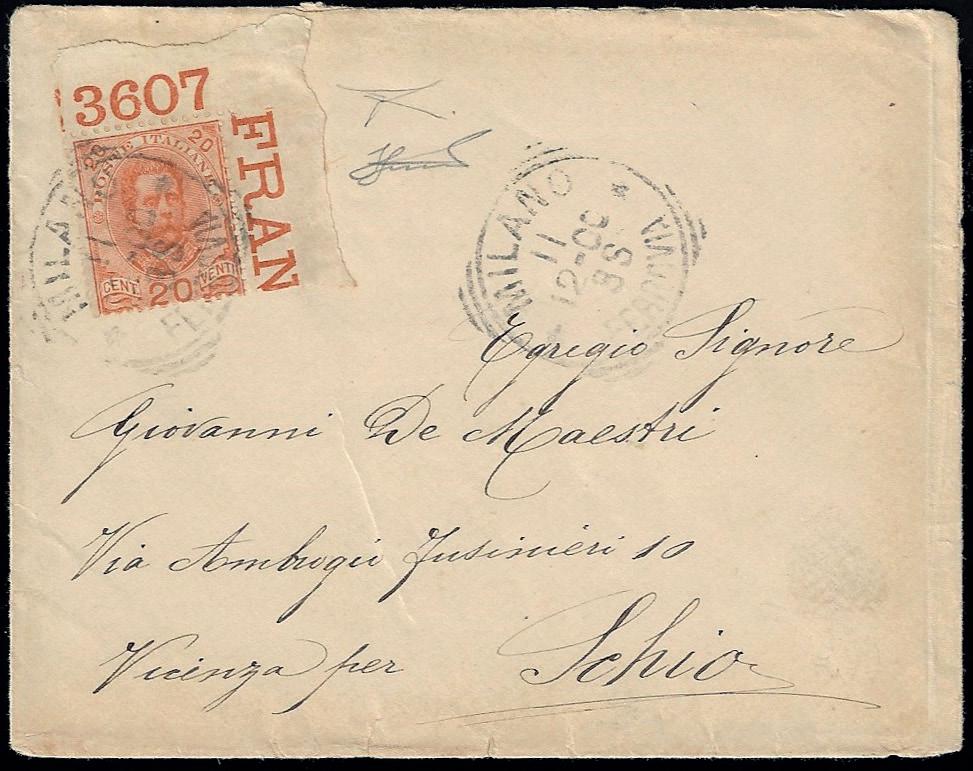 3607
FRAN
20 20
POSTE ITALIANE
CENT. 20 VENTI
MILANO
11
FERROVIA
MILANO
11
12-OC
95
FERROVIA
Egregio Signore
Giovanni De Maestri
Via Ambrogio Fusinieri 10
Vicenza per Schio